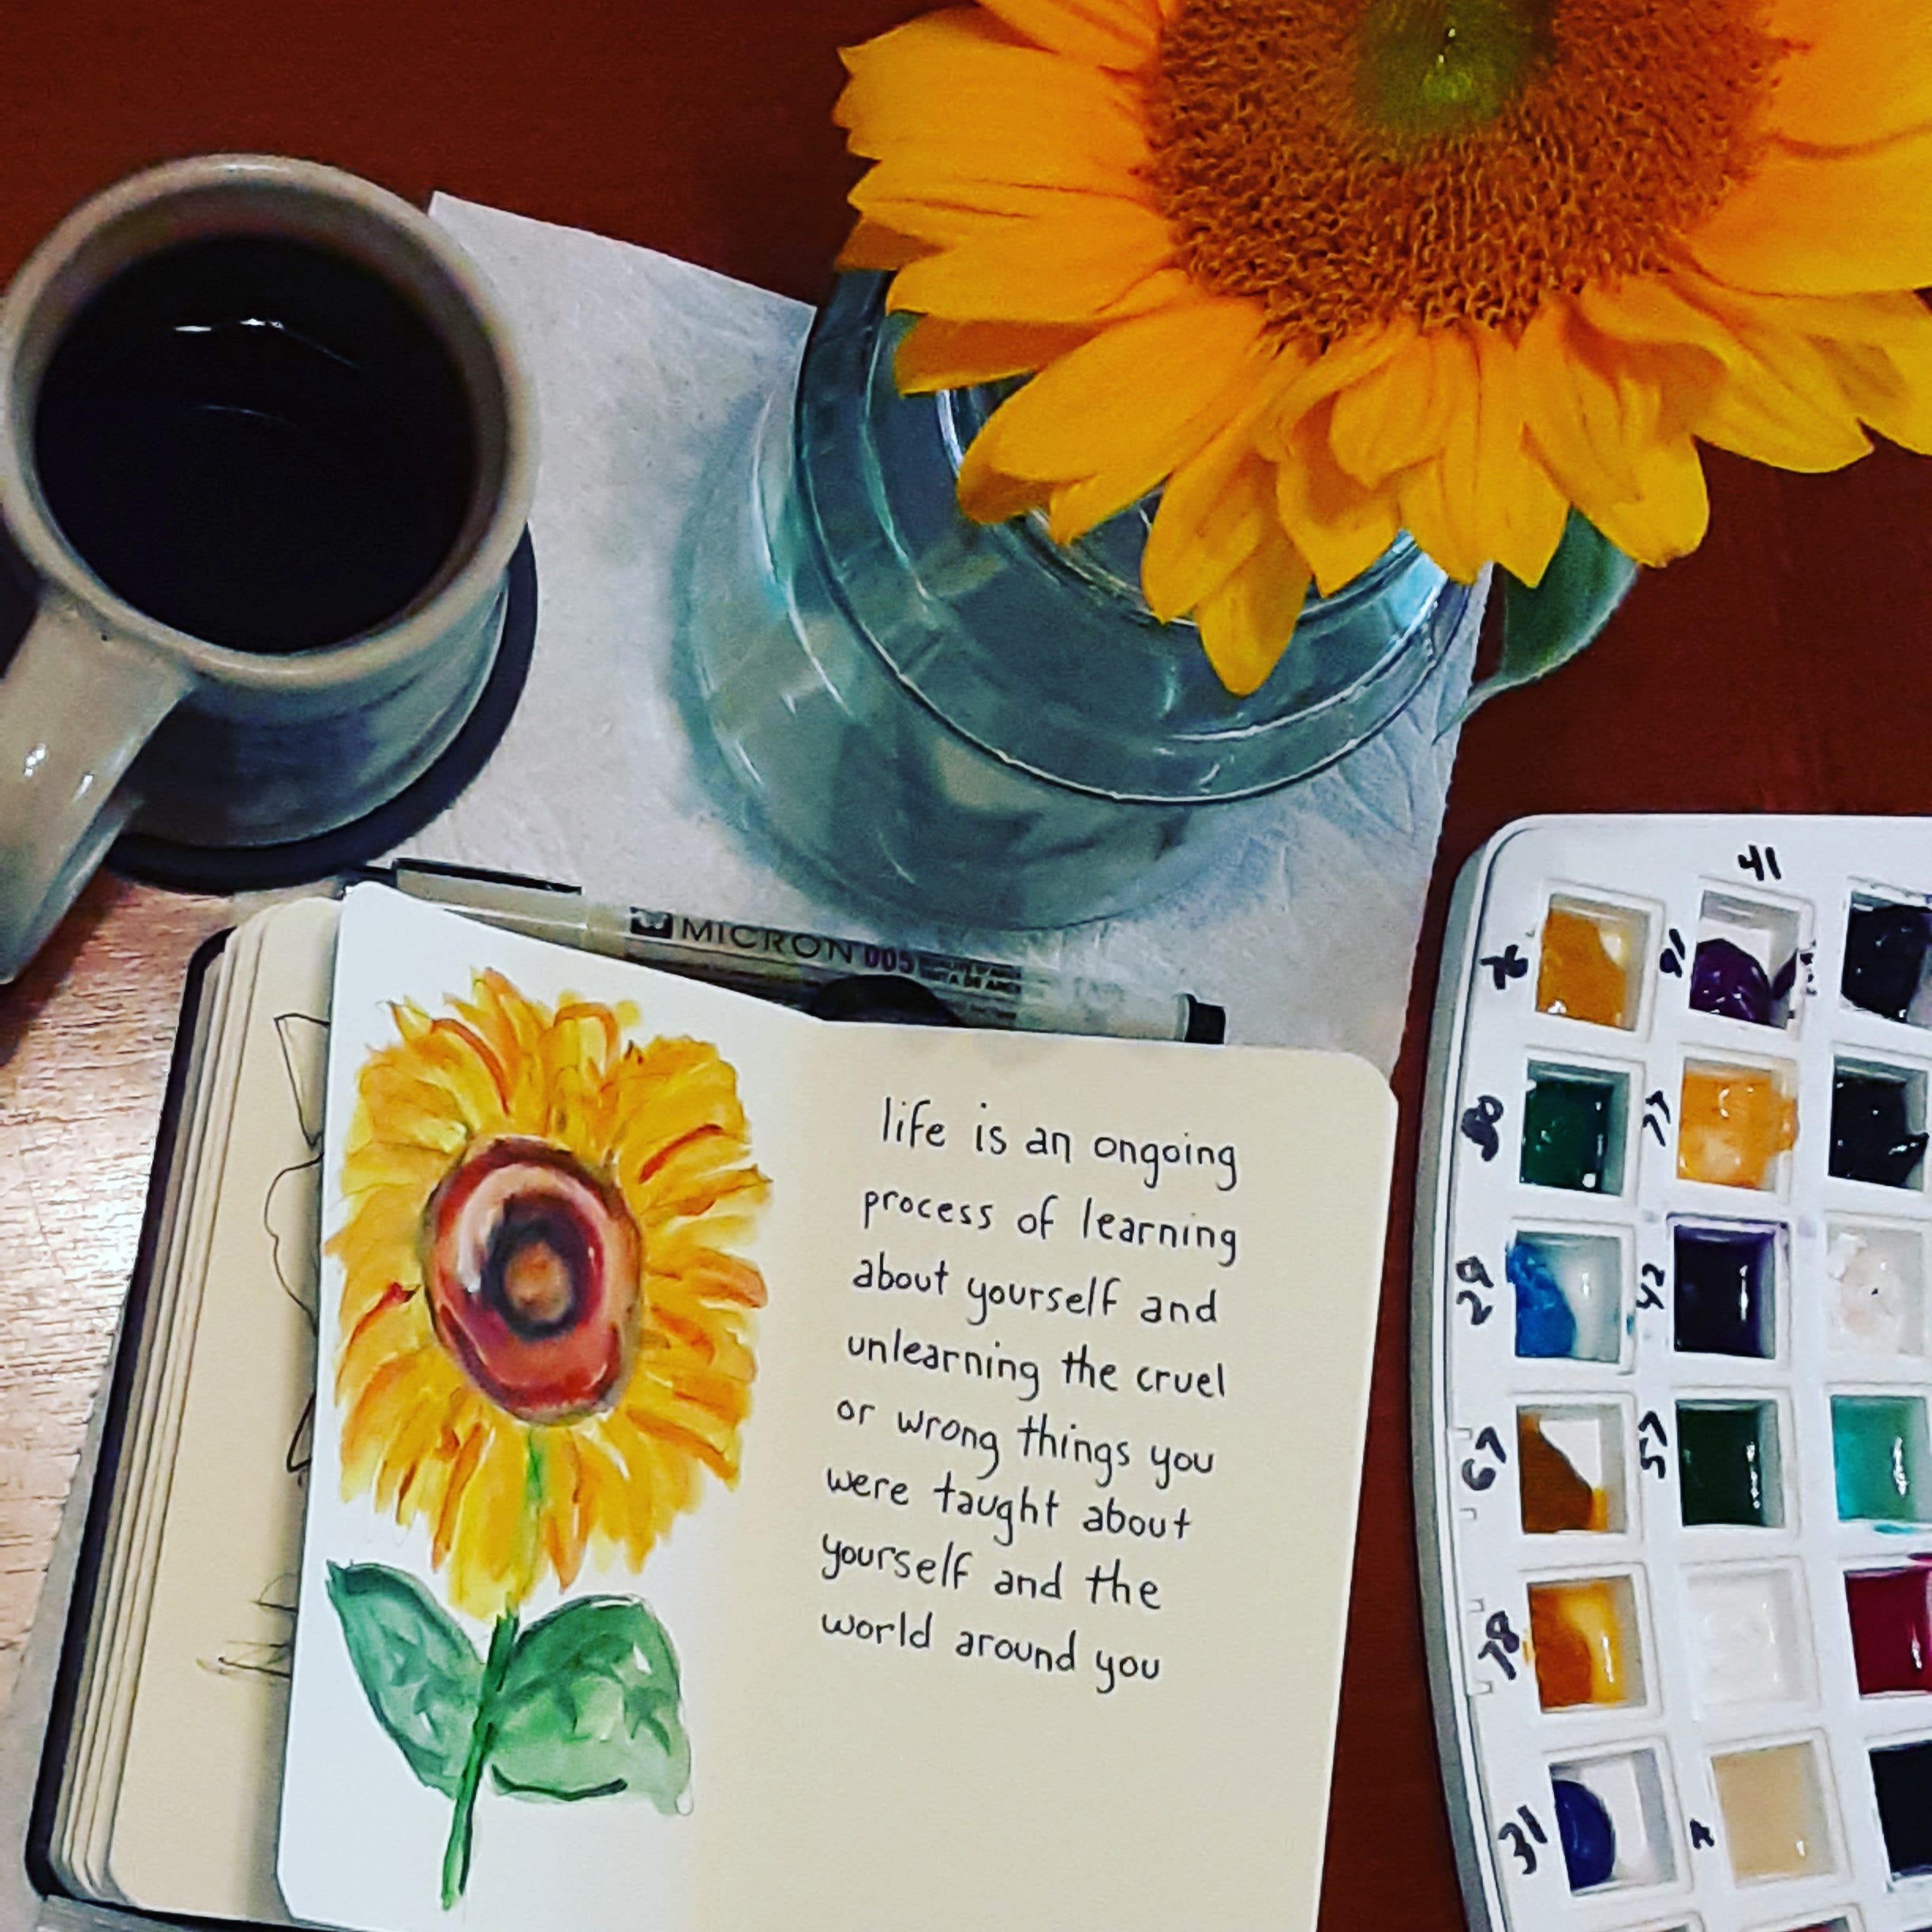 41
76
91
MICRON 005
80
77
29
42
67
57
78
31
life is an ongoing
process of learning
about yourself and
unlearning the cruel
or wrong things you
were taught about
yourself and the
world around you